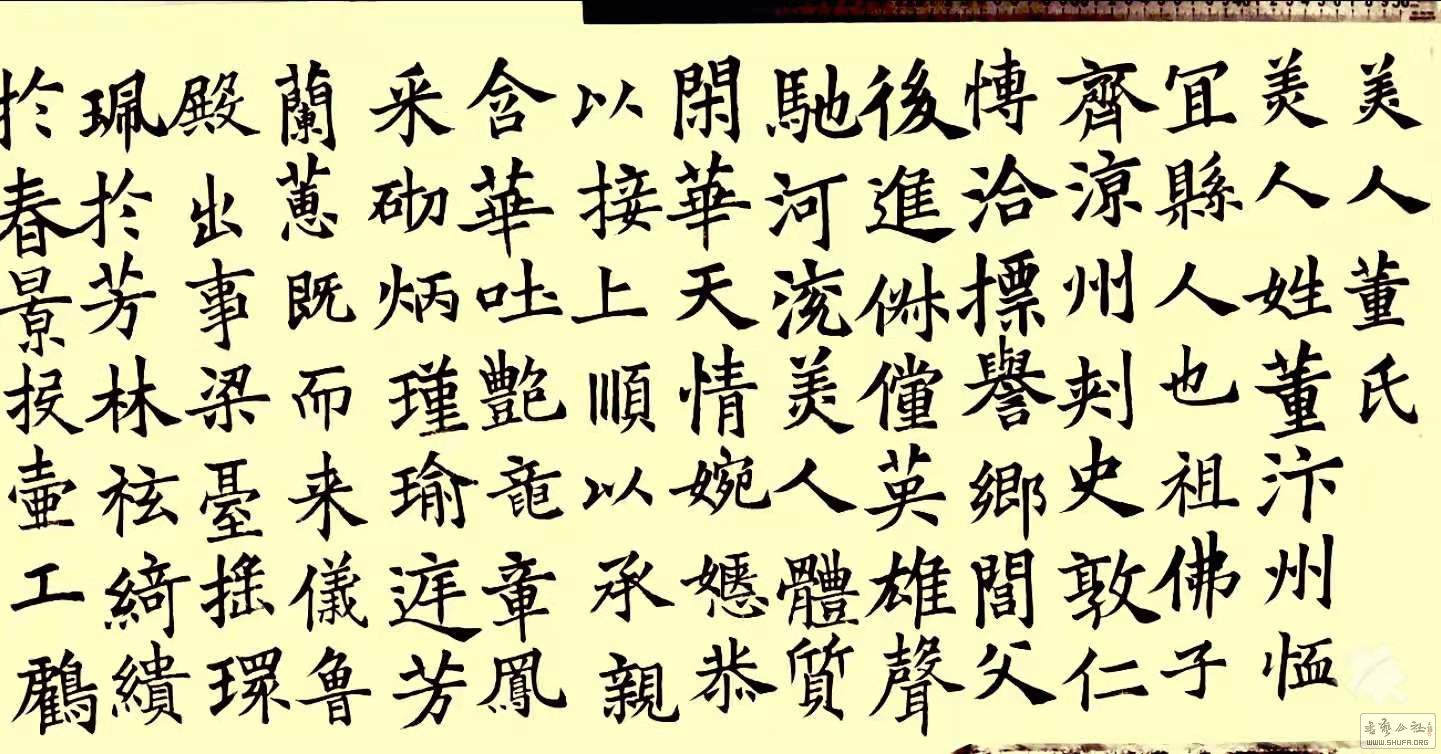 美人董氏
美人姓董汴州恤
冝縣人也祖佛子
齊涼州刾史敦仁
愽洽摽譽鄉閭父
後進俶儻英雄聲
馳河渷美人體質
閑華天情婉嫕恭
以接上順以承親
含華吐艶竜章鳳
采砌炳瑾瑜庭芳
蘭蕙既而来儀魯
殿出事梁臺摇環
珮於芳林袨綺繢
於春景投壷工鶴
书艺公社
WWW.SHUFA.ORG